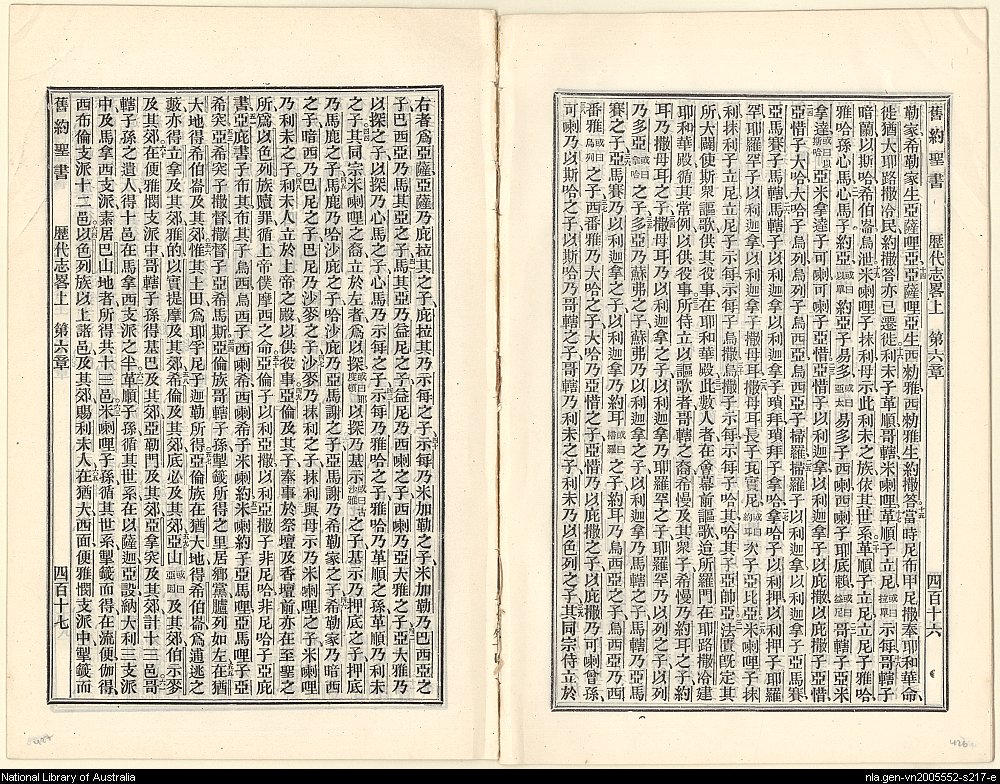 舊約聖書 歷代志畧上 第六章 四百十六
勒家希勒家生亞薩哩亞亞薩哩亞生西勑雅西勑雅生約撒答當時尼布甲尼撒奉耶和華命
徙猶大耶路撒冷民約撒答亦已遷徙利未子革順哥轄米喇哩革順子立尼或曰立拿示每哥轄子
暗蘭以斯哈希伯崙烏泄米喇哩子抹利母示此利未之族依其世系革順子立尼立尼子雅哈
雅哈孫心馬心馬子約亞或曰以單約亞子易多或曰亞太易多子西喇西喇子耶底賴或曰益尼哥轄子亞米
拿達或曰以斯哈亞米拿達子可喇可喇子亞惜亞惜子以利迦拿以利迦拿子以庇撒以庇撒子亞惜
亞惜子大哈大哈子烏列烏列子烏西亞烏西亞子掃羅掃羅子以利迦拿以利迦拿子亞馬賽
賽子馬轄馬轄子以利迦拿以利迦拿子瑣拜瑣拜子拿哈拿哈子以利押以利押子耶羅
罕耶羅罕子以利迦拿以利迦拿子撒母耳撒母耳長子瓦實尼或曰約耳次子亞比亞米喇哩子抹
利抹利子立尼立尼子示每示每子烏撒烏撒子示每示每子哈其哈其子亞師帥亞法匱既定其
所大闢使斯衆謳歌供其役事在耶和華殿此數人者在會幕前謳歌迨所羅門在耶路撒冷建
耶和華殿循其常例以供役事所侍立以謳歌者哥轄之裔希慢及其衆子希慢乃約耳之子約
耳乃撒母耳之子撒母耳乃以利迦拿之子以利迦拿乃耶羅罕之子耶羅罕乃以列之子以列
乃多亞或曰拿哈之子多亞乃蘇弗之子蘇弗乃以利迦拿之子以利迦拿乃馬轄之子馬轄乃亞馬
賽之子亞馬賽乃以利迦拿之子以利迦拿乃約耳或曰掃羅之子約耳乃烏西亞之子烏西亞乃西
番雅或曰烏列之子西番雅乃大哈之子大哈乃亞惜之子亞惜乃以庇撒之子以庇撒乃可喇曾孫
可喇乃以斯哈之子以斯哈乃哥轄之子哥轄乃利未之子利未乃以色列之子其同宗侍立於
右者爲亞薩亞薩乃庇拉其之子庇拉其乃示每之子示每乃米加勒之子米加勒乃巴西亞之
子巴西亞乃馬其亞之子馬其亞乃益尼之子益尼乃西喇之子西喇乃亞大雅之子亞大雅乃
以探之子以探乃心馬之子心馬乃示每之子示每乃雅哈之子雅哈乃革順之孫革順乃利未
之子其同宗米喇哩之裔立於左者爲以探或曰耶度頓以探乃基示或曰古沙雅之子基示乃押底之子押底
乃馬鹿之子馬鹿乃哈沙庇之子哈沙庇乃亞馬謝之子亞馬謝乃希勒家之子希勒家乃暗西
之子暗西乃巴尼之子巴尼乃沙麥之子沙麥乃抹利之子抹利與母示乃米喇哩之子米喇哩
乃利未之子利未人立於上帝之殿以供役事亞倫及其子奉事於祭壇及香壇前亦在至聖之
所爲以色列族贖罪循上帝僕摩西之命亞倫子以利亞撒以利亞撒子非尼哈非尼哈子亞庇
書亞庇書子布其布其子烏西烏西子西喇希西喇希子米喇約米喇約子亞馬哩亞亞馬哩子亞
希突亞希突子撒督撒督子亞希馬斯亞倫族哥轄子孫掣籤所得之里居鄉黨臚列如左在猶
大地得希伯崙及其郊惟其土田爲耶孚尼子迦勒所得亞倫族在猶大地得希伯崙爲逋逃之
藪亦得立拿及其郊雅的以實提摩及其郊希倫及其郊底必及其郊亞山或曰亞因及其郊伯示麥
及其郊在便雅憫支派中哥轄子孫得基巴及其郊亞勒門及其郊亞拿突及其郊計十三邑哥
轄子孫之遺人得十邑在馬拿西支派之半革順子孫循其世系在以薩迦亞設納大利三支派
中及馬拿西支派素居巴山地者所得共十三邑米喇哩子孫循其世系掣籤而得在流便伽得
西布倫支派十二邑以色列族以上諸邑及其郊賜利未人在猶大西面便雅憫支派中掣籤而
舊約聖書 歷代志畧上 第六章 四百十七
National Library of Australia
nla.gen-vn2005552-s217-e